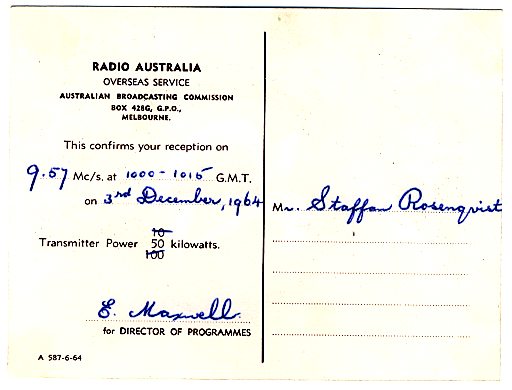 RADIO AUSTRALIA
OVERSEAS SERVICE
AUSTRALIAN BROADCASTING COMMISSION
BOX 428G, G.P.O.,
MELBOURNE.
This confirms your reception on
9.57 Mc/s. at 1000 - 1015 G.M.T.
on 3rd December, 1964
Transmitter Power 10
50 kilowatts.
100
E. Maxwell
for DIRECTOR OF PROGRAMMES
A 587-6-64
Mr. Staffan Rosenqvist